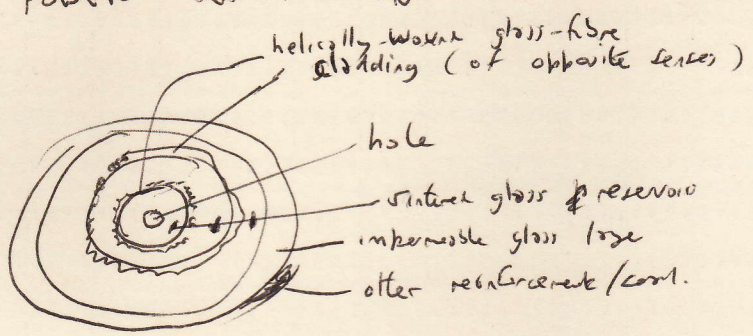 helically-wound glass-fibre
cladding (of opposite senses)
hole
sintered glass reservoir
impermeable glass
other reinforcement/